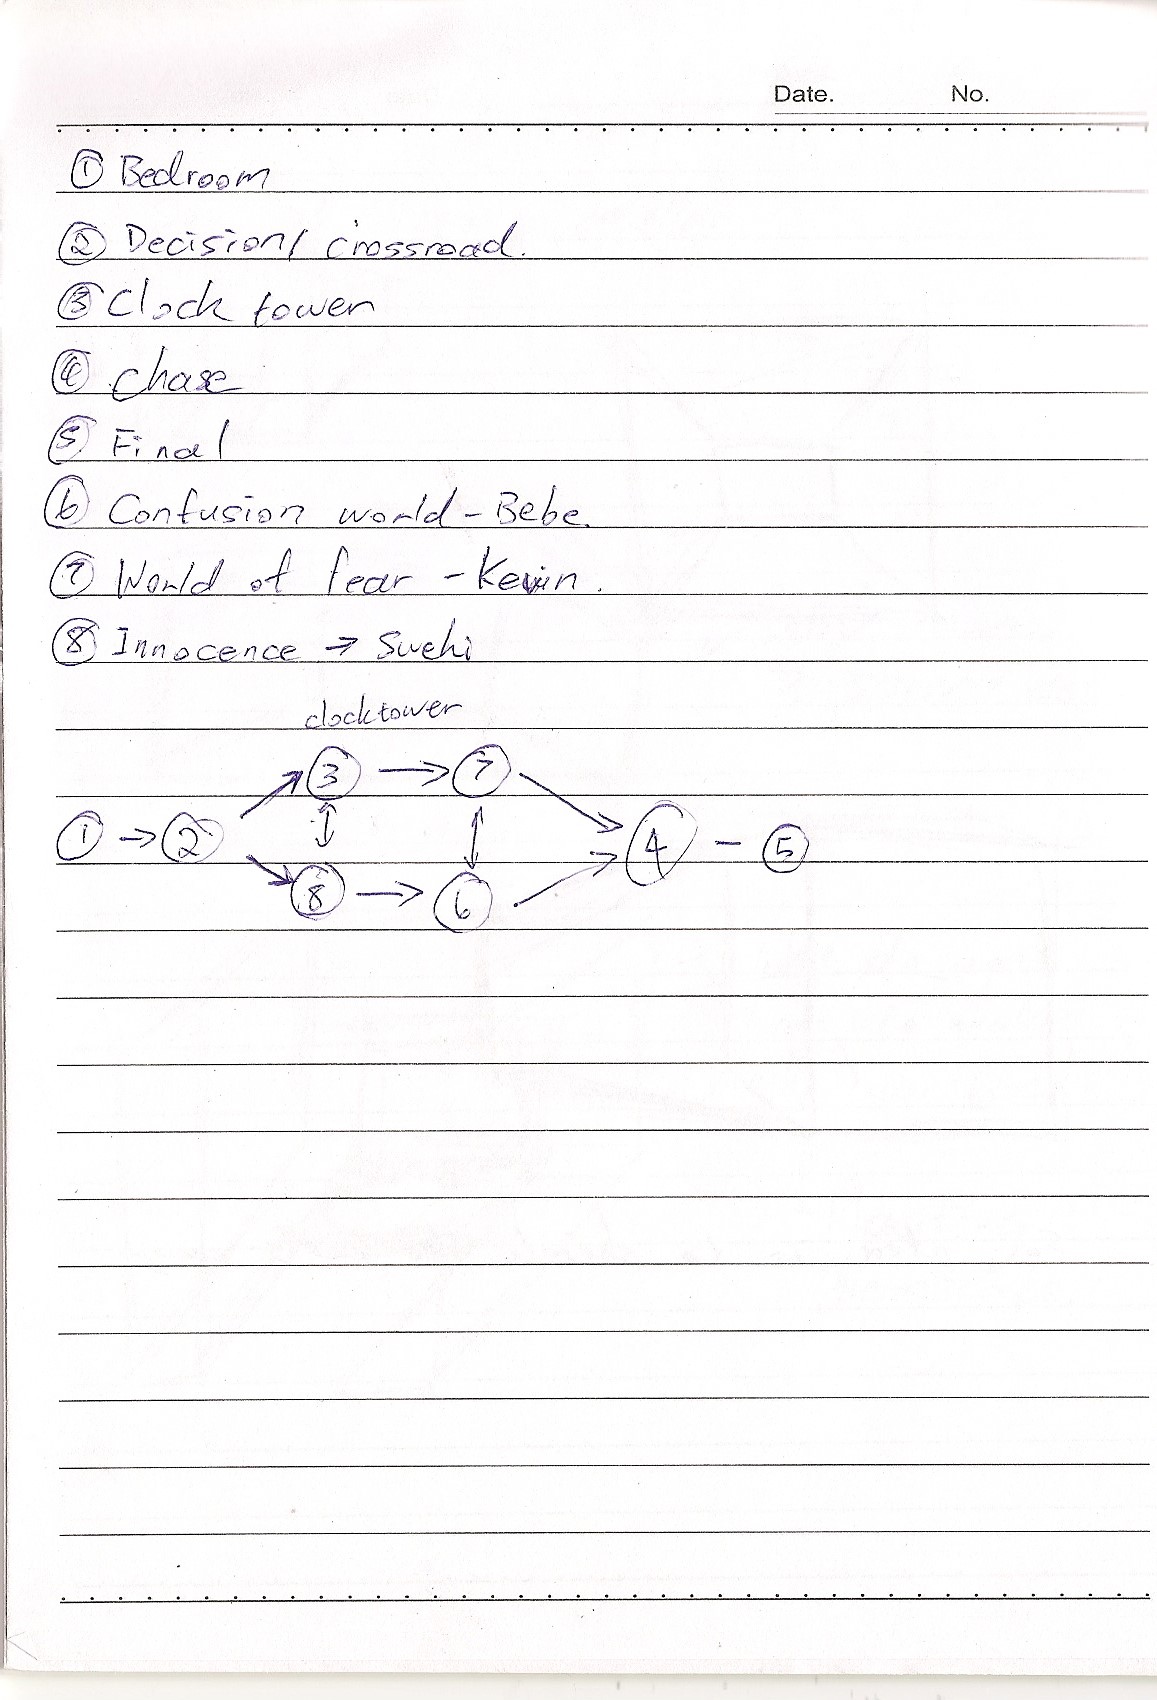 Date. No.
① Bedroom
② Decision/ crossroad.
③ Clock tower
④ chase
⑤ Final
⑥ Confusion world - Bebe.
⑦ World of fear - Kevin.
⑧ Innocence →
clocktower
③ → ⑦
① → ② ④ - ⑤
⑧ → ⑥